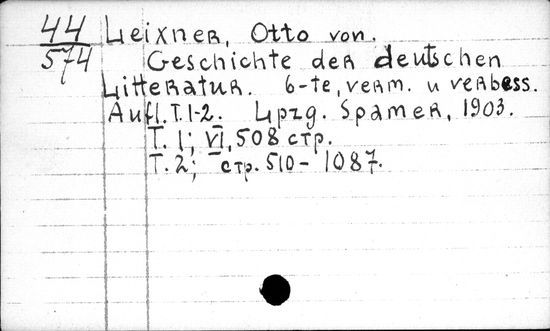 44 Leixner, Otto von.
574 Geschichte der deutschen
Litteratur. 6-te, verm. u verbess.
Aufl. T. 1-2. Lpzg. Spamer, 1903.
T. 1; VI, 508 стр.
T. 2; стр. 510-1087.